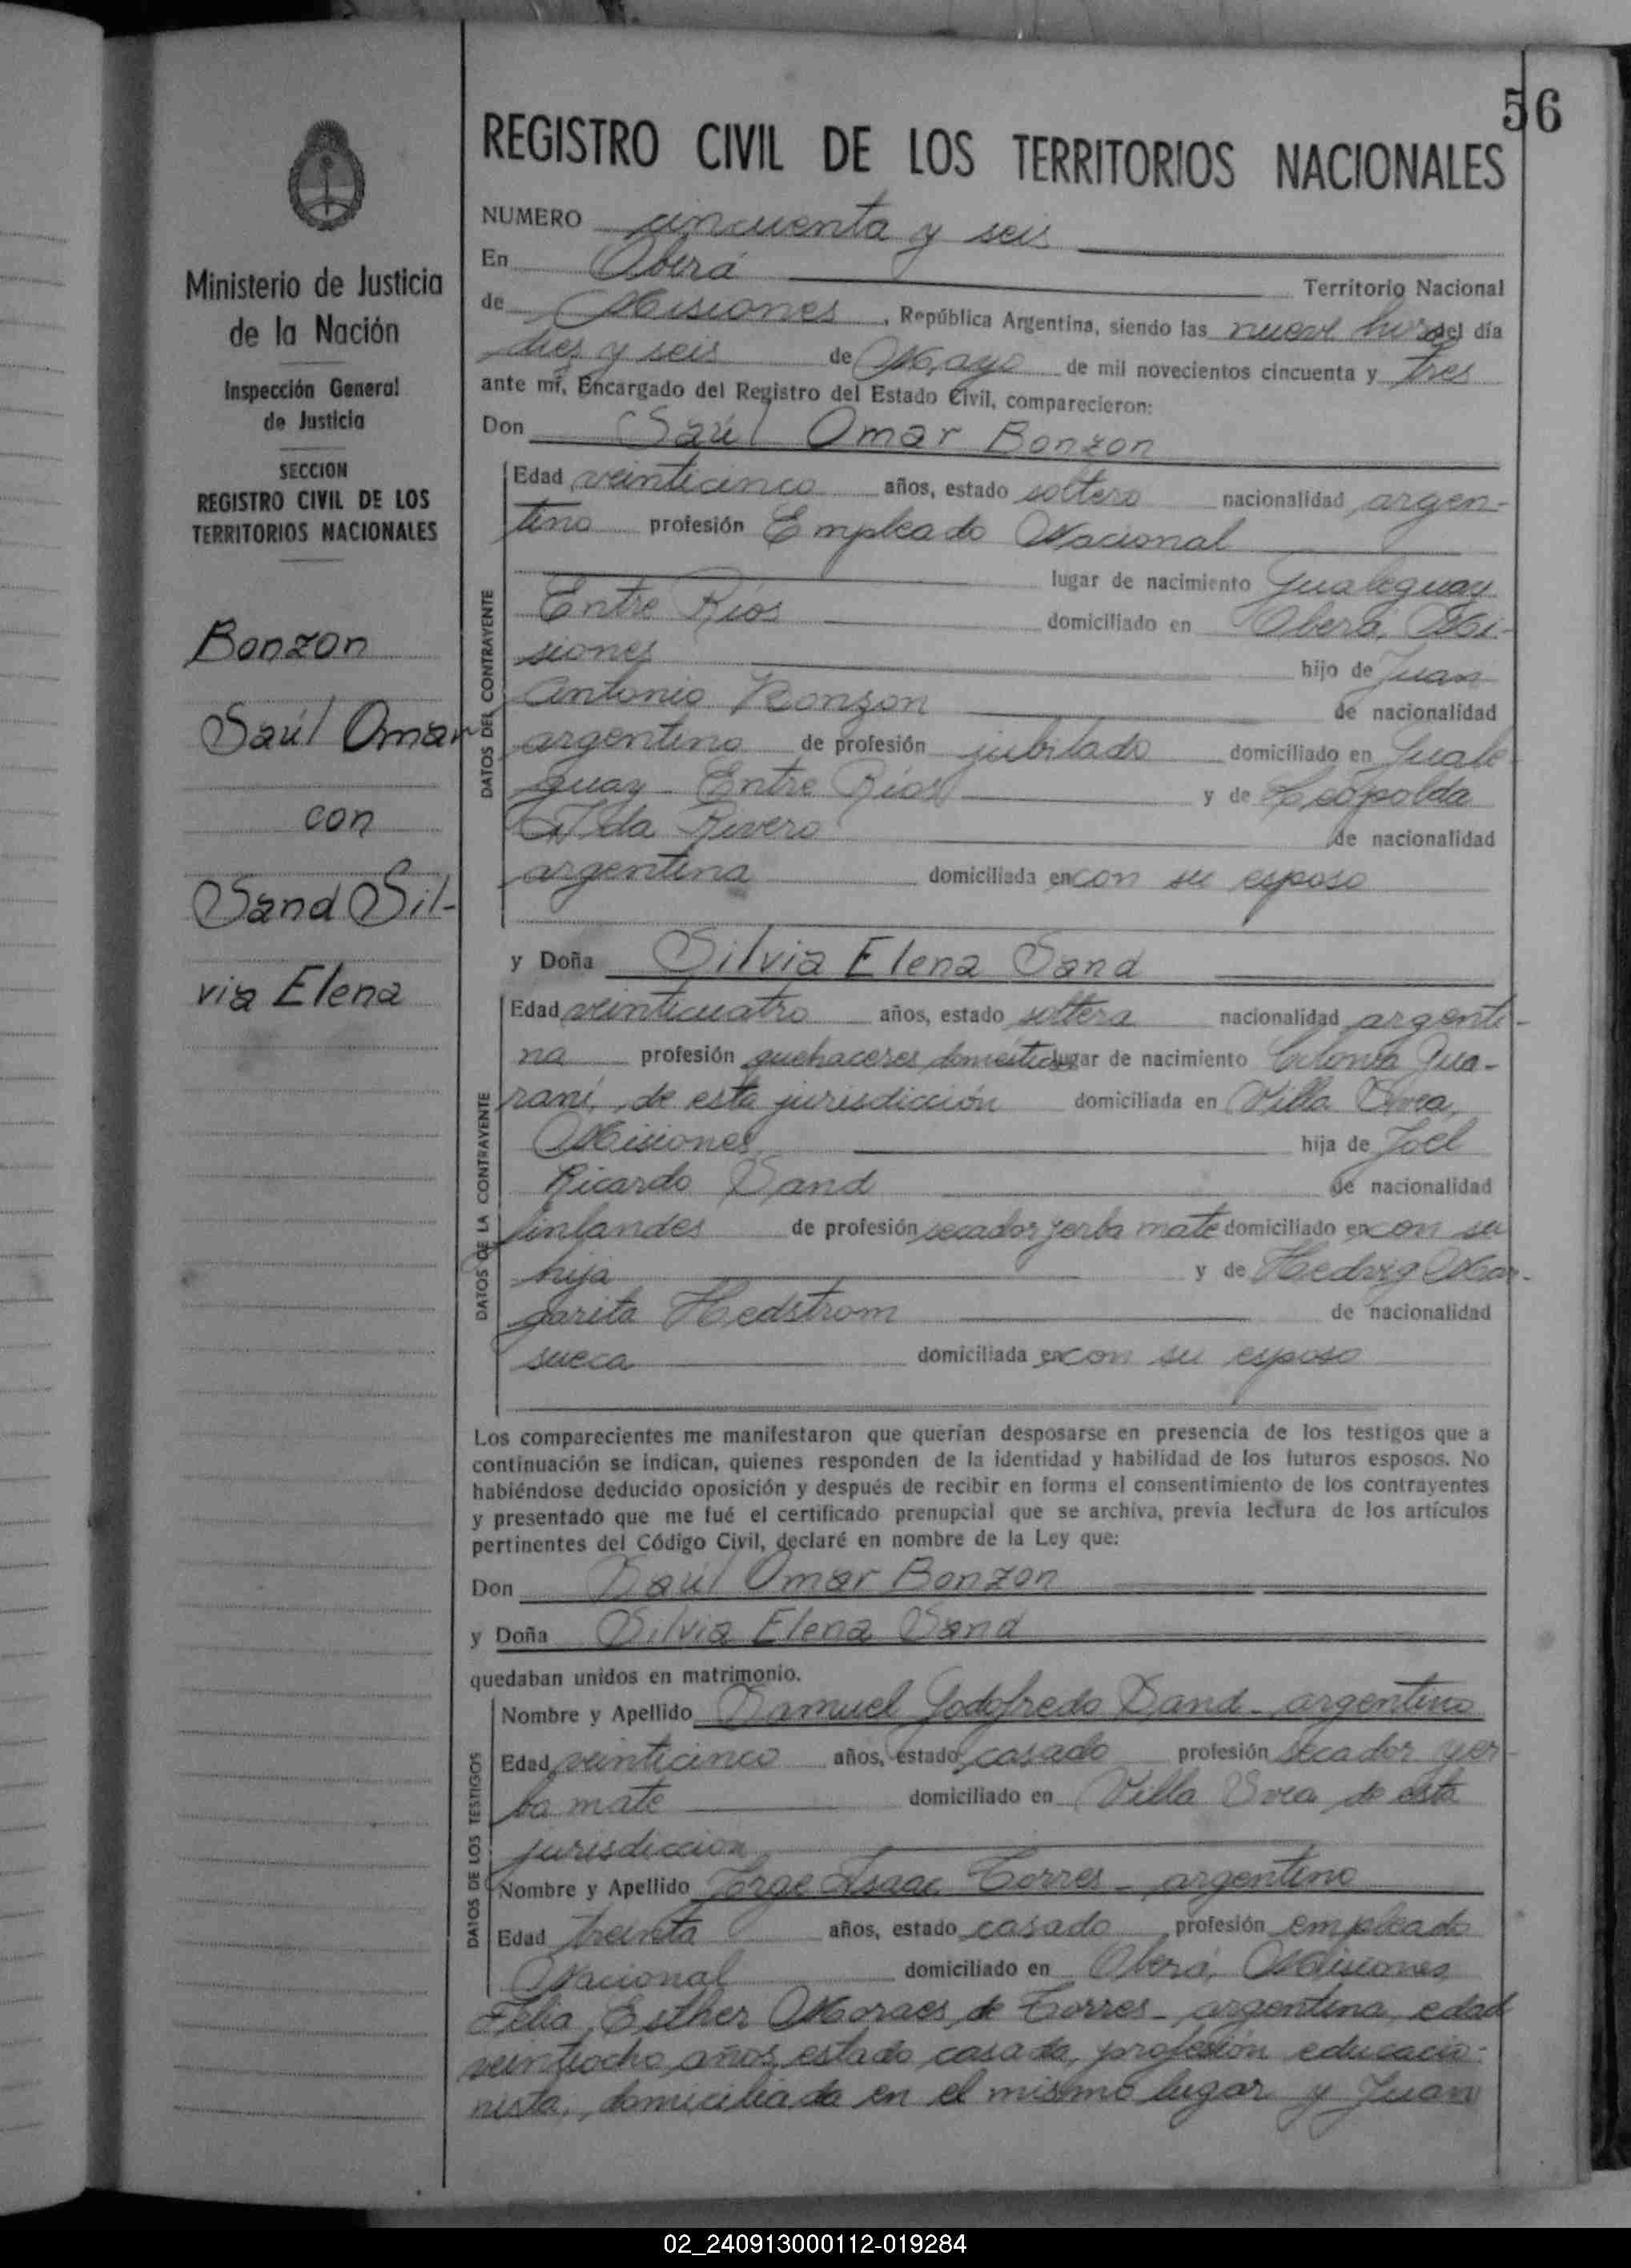 56
REGISTRO CIVIL DE LOS TERRITORIOS NACIONALES
Ministerio de Justicia
de la Nación
Inspección General
de Justicia
SECCION
REGISTRO CIVIL DE LOS
TERRITORIOS NACIONALES
Bonzon
Saúl Omar
con
Sand Sil-
via Elena
NUMERO cincuenta y seis
En Oberá Territorio Nacional
de Misiones, República Argentina, siendo las nueve horas del día
diez y seis de Mayo de mil novecientos cincuenta y tres
ante mí, Encargado del Registro del Estado Civil, comparecieron:
Don Saúl Omar Bonzon
DATOS DEL CONTRAYENTE
Edad veinticinco años, estado soltero nacionalidad argen-
tino profesión Empleado Nacional
lugar de nacimiento Gualeguay
Entre Ríos domiciliado en Oberá, Mi-
siones hijo de Juan
Antonio Bonzon de nacionalidad
argentino de profesión jubilado domiciliado en Guale
guay Entre Ríos y de Leopolda
Rivero de nacionalidad
argentina domiciliada en con su esposo
y Doña Silvia Elena Sand
DATOS DE LA CONTRAYENTE
Edad veinticuatro años, estado soltera nacionalidad argenti-
na profesión quehaceres domésticos lugar de nacimiento Colonia Gua-
raní, de esta jurisdicción domiciliada en Villa Svea,
Misiones hija de Joel
Ricardo Sand de nacionalidad
finlandes de profesión secador yerba mate domiciliado en con su
hija y de Hedvig Mar-
garita Hedstrom de nacionalidad
sueca domiciliada en con su esposo
Los comparecientes me manifestaron que querían desposarse en presencia de los testigos que a
continuación se indican, quienes responden de la identidad y habilidad de los futuros esposos. No
habiéndose deducido oposición y después de recibir en forma el consentimiento de los contrayentes
y presentado que me fué el certificado prenupcial que se archiva, previa lectura de los artículos
pertinentes del Código Civil, declaré en nombre de la Ley que:
Don Saúl Omar Bonzon
y Doña Silvia Elena Sand
quedaban unidos en matrimonio.
DATOS DE LOS TESTIGOS
Nombre y Apellido Samuel Godofredo Sand - argentino
Edad veinticinco años, estado casado profesión secador yer-
ba mate domiciliado en Villa Svea de esta
jurisdiccion
Nombre y Apellido Jorge Isaac Torres - argentino
Edad treinta años, estado casado profesión empleado
Nacional domiciliado en Oberá, Misiones
Felia Esther Moraes de Torres - argentina, edad
veintiocho años, estado casada, profesión educacio-
nista, domiciliada en el mismo lugar y Juan
02_240913000112-019284